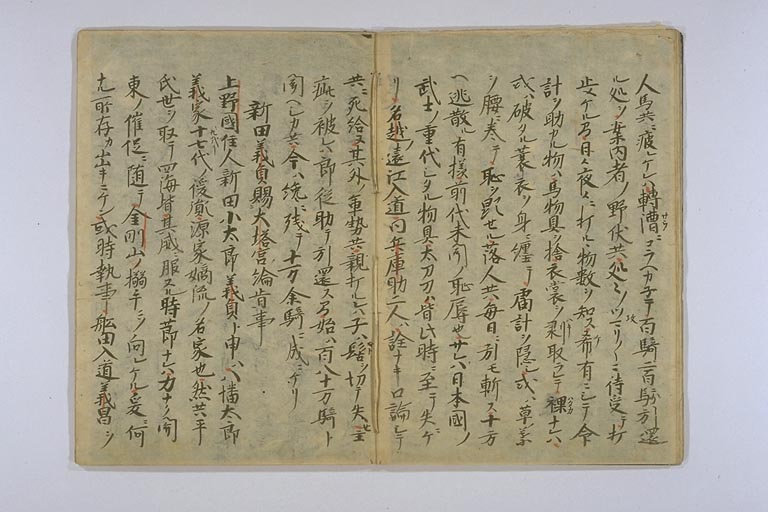 人馬共ニ疲レケレハ轉漕ニコラヘカ子テ百騎二百騎引還
ル処ヲ案内者ノ野伏共処々ノツマリ〳〵ニ待受テ打
止メケル間日々夜々ニ打ルヽ物数ヲ知ス希有ニシテ命
計ヲ助カル物ハ馬物具ヲ捨衣裳ヲ剥取ラレテ裸ナレハ
或ハ破タル蓑衣ヲ身ニ纏テ膚計ヲ隠シ或ハ草葉
ヲ腰ニ巻テ恥ヲ顕セル落人共毎日ニ引モ斬ス十方
ヘ逃散ル有様前代未聞ノ恥辱也サレハ日本國ノ
武士ノ重代シタル物具太刀刀ハ皆此時ニ至テ失ニケ
リ名越遠江入道同兵庫助二人ハ詮ナキ口論シテ
共ニ死給ヌ其外ノ軍勢共親打ルレハ子ハ髻ヲ切テ失主
疵ヲ被レハ郎従助テ引還ス間始ハ百八十万騎ト
聞ヘシカ共今ハ纔残テ十万余騎ニ成ニケリ
新田義貞賜大塔宮綸旨事
上野國住人新田小太郎義貞ト申ハ八幡太郎
義家十七代ノ後胤源家嫡流ノ名家也然共平
氏世ヲ取テ四海皆其威ニ服スル時節ナレハ力ナク関
東ノ催促ニ随テ金剛山ノ搦手ニソ向レケル爰ニ何
ナル所存カ出キニケン或時執事舩田入道義昌ヲ